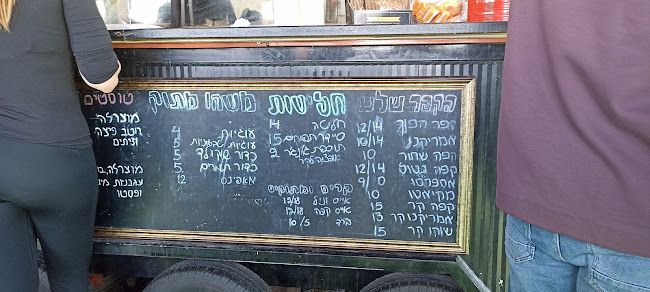 הקפה שלנו
קפה הפוך 12/14
אמריקנו 10/14
קפה שחור 10
קפה בטוס 12/14
אספרסו 9/10
מקיאטו 10
קפה קר 15
אמריקנו קר 13
שוקו קר 15
חליטות
חליטה 14
סיידר תפוחים 15
תוספת 2
קרים ומתוקים
אייס וניל 13/18
אייס קפה 12/18
ברד 10/5
משהו מתוק
עוגיות 4
עוגיות 5
כדור שוקולד 5
כדור תמרים 5
מאפינס 12
טוסטים
מוצרלה
רוטב פיצה
וזיתים
מוצרלה,
עגבניות
ופסטו